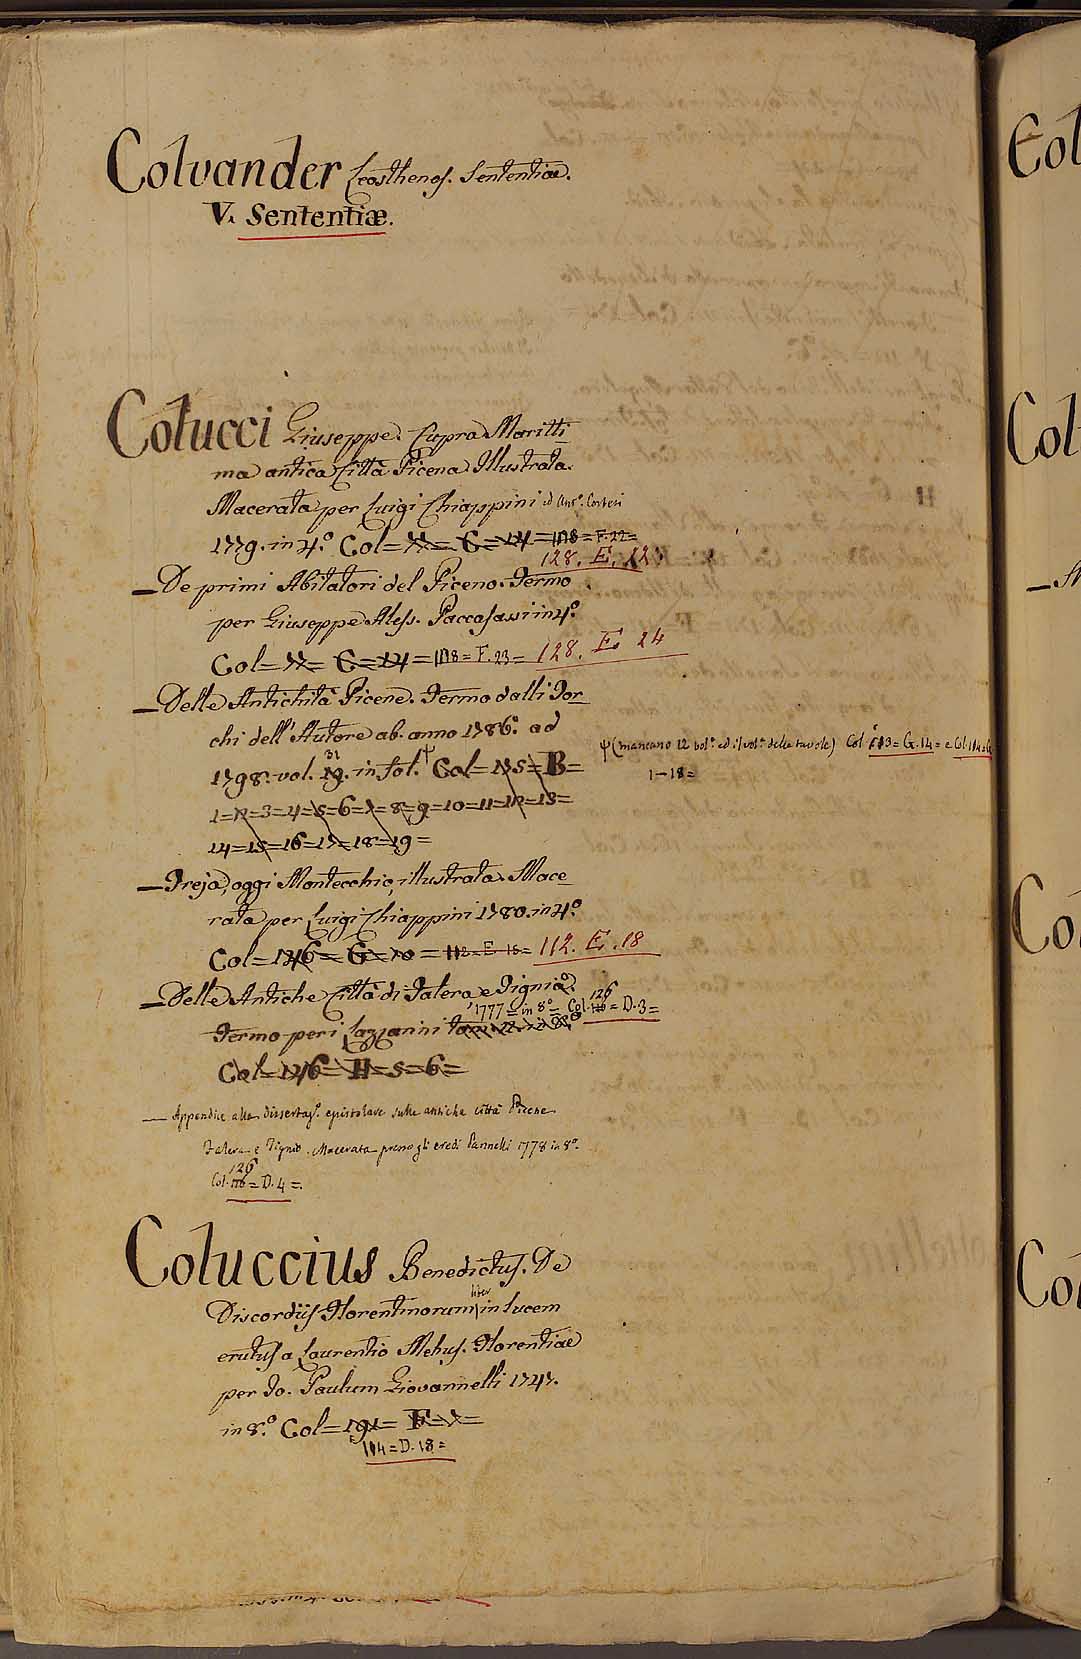 Coluander Leosthenes. Sententiæ.
V. Sententiæ.
Colucci Giuseppe. Cupra Maritti
ma antica Città Picena Illustrata.
Macerata per Luigi Chiappini ed Ant.º Cortesi
1779. in 4.º Col= = G=14= =F.22=
128. E. 22
— De primi Abitatori del Piceno. Fermo
per Giuseppe Aless. Paccasassi in 4.º
Col= = G=14= = F.23= 128. E. 24
— Delle Antichità Picene. Fermo dalli Tor
chi dell'Autore ab. anno 1786. ad
31
1798. vol. 19. in fol. Ψ Col=175=B=
Ψ (mancano 12 vol.i ed il vol.e delle tavole) Col 113=G.14= e Col.114=G
1—18=
1=2=3=4=5=6=7=8=9=10=11=12=13=
14=15=16=17=18=19=
— Treja, oggi Montecchio, illustrata. Mace
rata per Luigi Chiappini 1780. in 4.º
Col=146=G=10= =112=E=18= 112. E. 18
— Delle Antiche Città di Falera e Tignio.
1777= in 8º= Col. 126 = D.3=
Fermo per i Lazzarini
Col=146=H=5=6=
— Appendice alla dissertaz.e epistolare sulle antiche città Picene
Falera e Tignio. Macerata presso gli eredi Pannelli 1778 in 8º.
126
Col. = D.4=.
Coluccius Benedictus. De
Discordiis Florentinorum liber in lucem
erutus a Laurentio Mehus. Florentiae
per Jo. Paulum Giovannelli 1747.
in 8.º Col=191= F=7=
104=D.18=
Col
Col
Col
Col